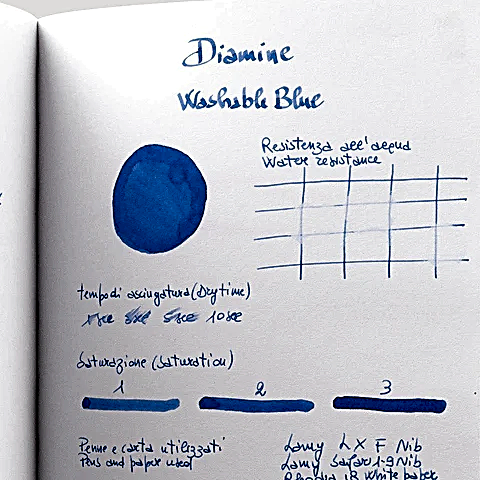 Diamine
Washable Blue
Resistenza all'acqua
Water resistance
tempo di asciugatura (Dry time)
1sec 3sec 5sec 10sec
Saturazione (Saturation)
1 2 3
Penne e carta utilizzati
Pens and paper used
Lamy LX F Nib
Lamy Safari 1.9 Nib
Rhodia R White paper